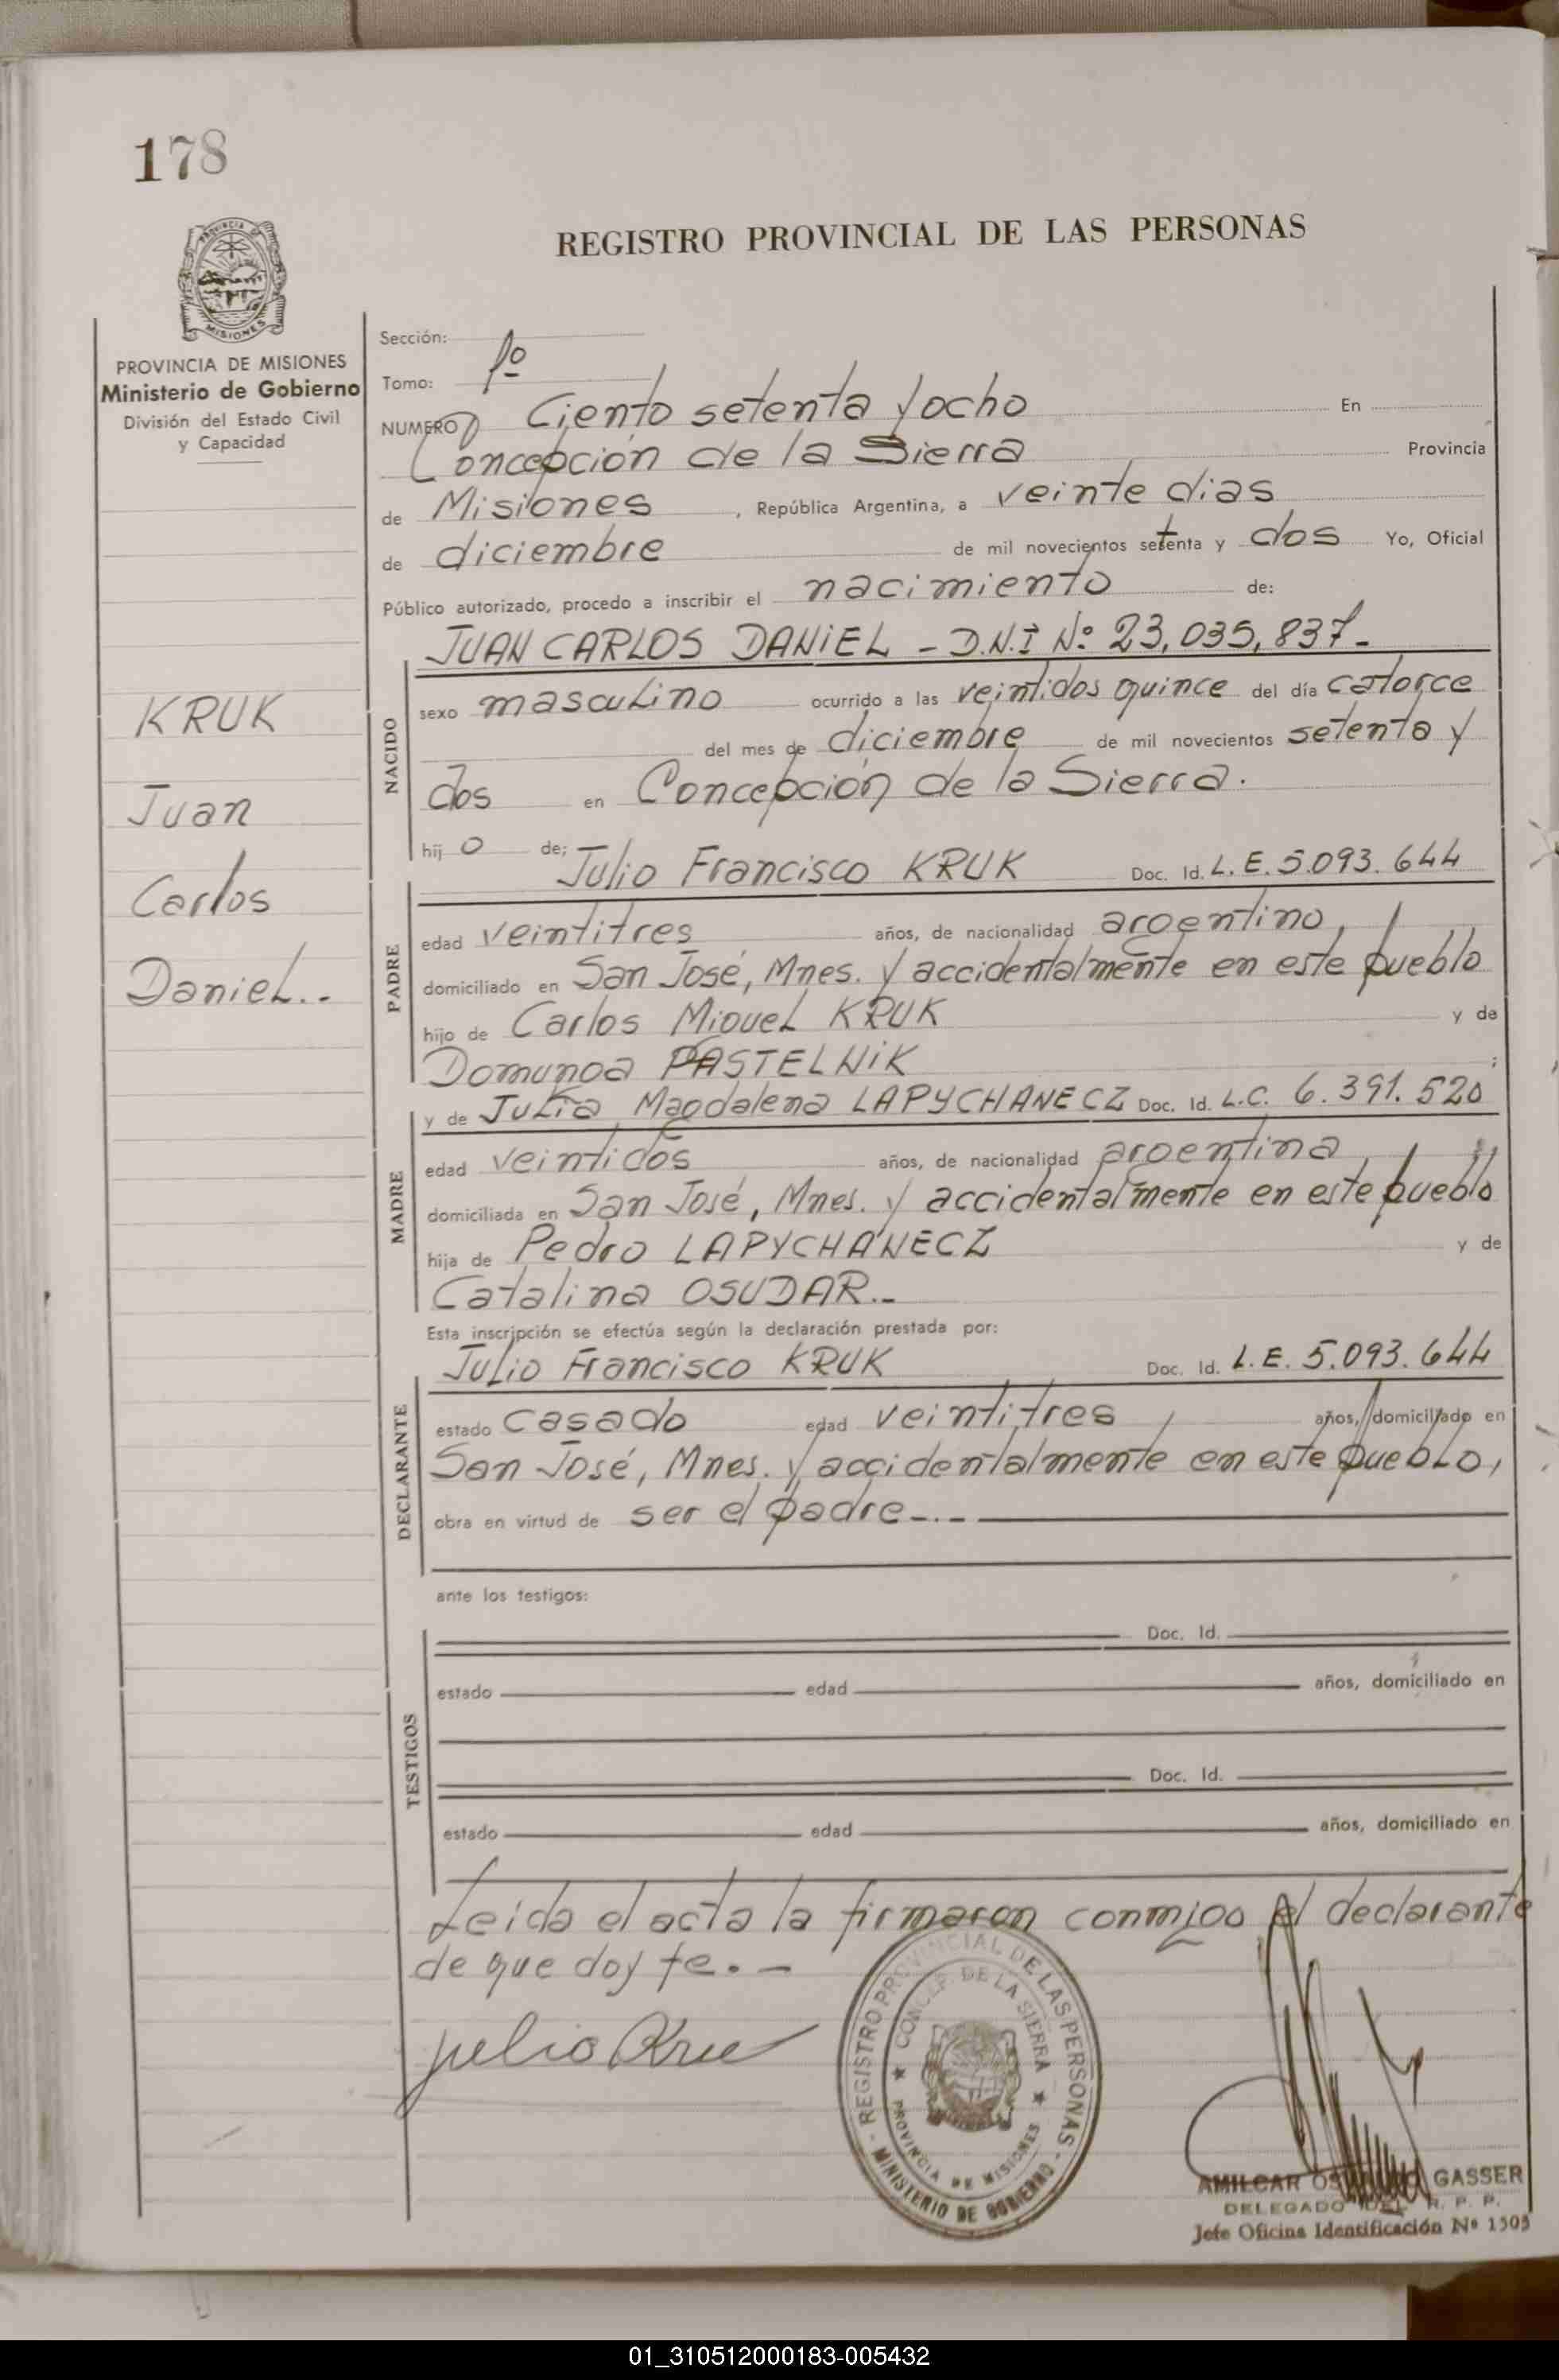 178
REGISTRO PROVINCIAL DE LAS PERSONAS
PROVINCIA DE MISIONES
Ministerio de Gobierno
División del Estado Civil
y Capacidad
KRUK
Juan
Carlos
Daniel..
Sección:
Tomo: 1º
NUMERO Ciento setenta y ocho En
Concepción de la Sierra Provincia
de Misiones, República Argentina, a veinte dias
de diciembre de mil novecientos setenta y dos Yo, Oficial
Público autorizado, procedo a inscribir el nacimiento de:
JUAN CARLOS DANIEL - D.N.I Nº 23,035,837-
NACIDO
sexo masculino ocurrido a las veintidos quince del día catorce
del mes de diciembre de mil novecientos setenta y
dos en Concepción de la Sierra.
hij o de; Julio Francisco KRUK Doc. Id. L.E. 5.093.644
PADRE
edad veintitres años, de nacionalidad argentino,
domiciliado en San José, Mnes. y accidentalmente en este pueblo
hijo de Carlos Miguel KRUK y de
Domunga PASTELNIK ;
y de Julia Magdalena LAPYCHANECZ Doc. Id. L.C. 6.391.520
MADRE
edad veintidos años, de nacionalidad argentina,
domiciliada en San José, Mnes. y accidentalmente en este pueblo
hija de Pedro LAPYCHANECZ y de
Catalina OSUDAR.-
Esta inscripción se efectúa según la declaración prestada por:
Julio Francisco KRUK Doc. Id. L.E. 5.093.644
DECLARANTE
estado casado edad veintitres, años, domiciliado en
San José, Mnes. y accidentalmente en este pueblo,
obra en virtud de ser el padre-.-
ante los testigos:
TESTIGOS
Doc. Id.
estado edad años, domiciliado en
Doc. Id.
estado edad años, domiciliado en
Leida el acta la firmaron conmigo el declarante
de que doy fe.-
Julio Kru
REGISTRO PROVINCIAL DE LAS PERSONAS - MINISTERIO DE GOBIERNO -
CONCEP. DE LA SIERRA ★ PROVINCIA DE MISIONES ★
AMILCAR GASSER
DELEGADO DEL R. P. P.
Jefe Oficina Identificación Nº 1505
01_310512000183-005432